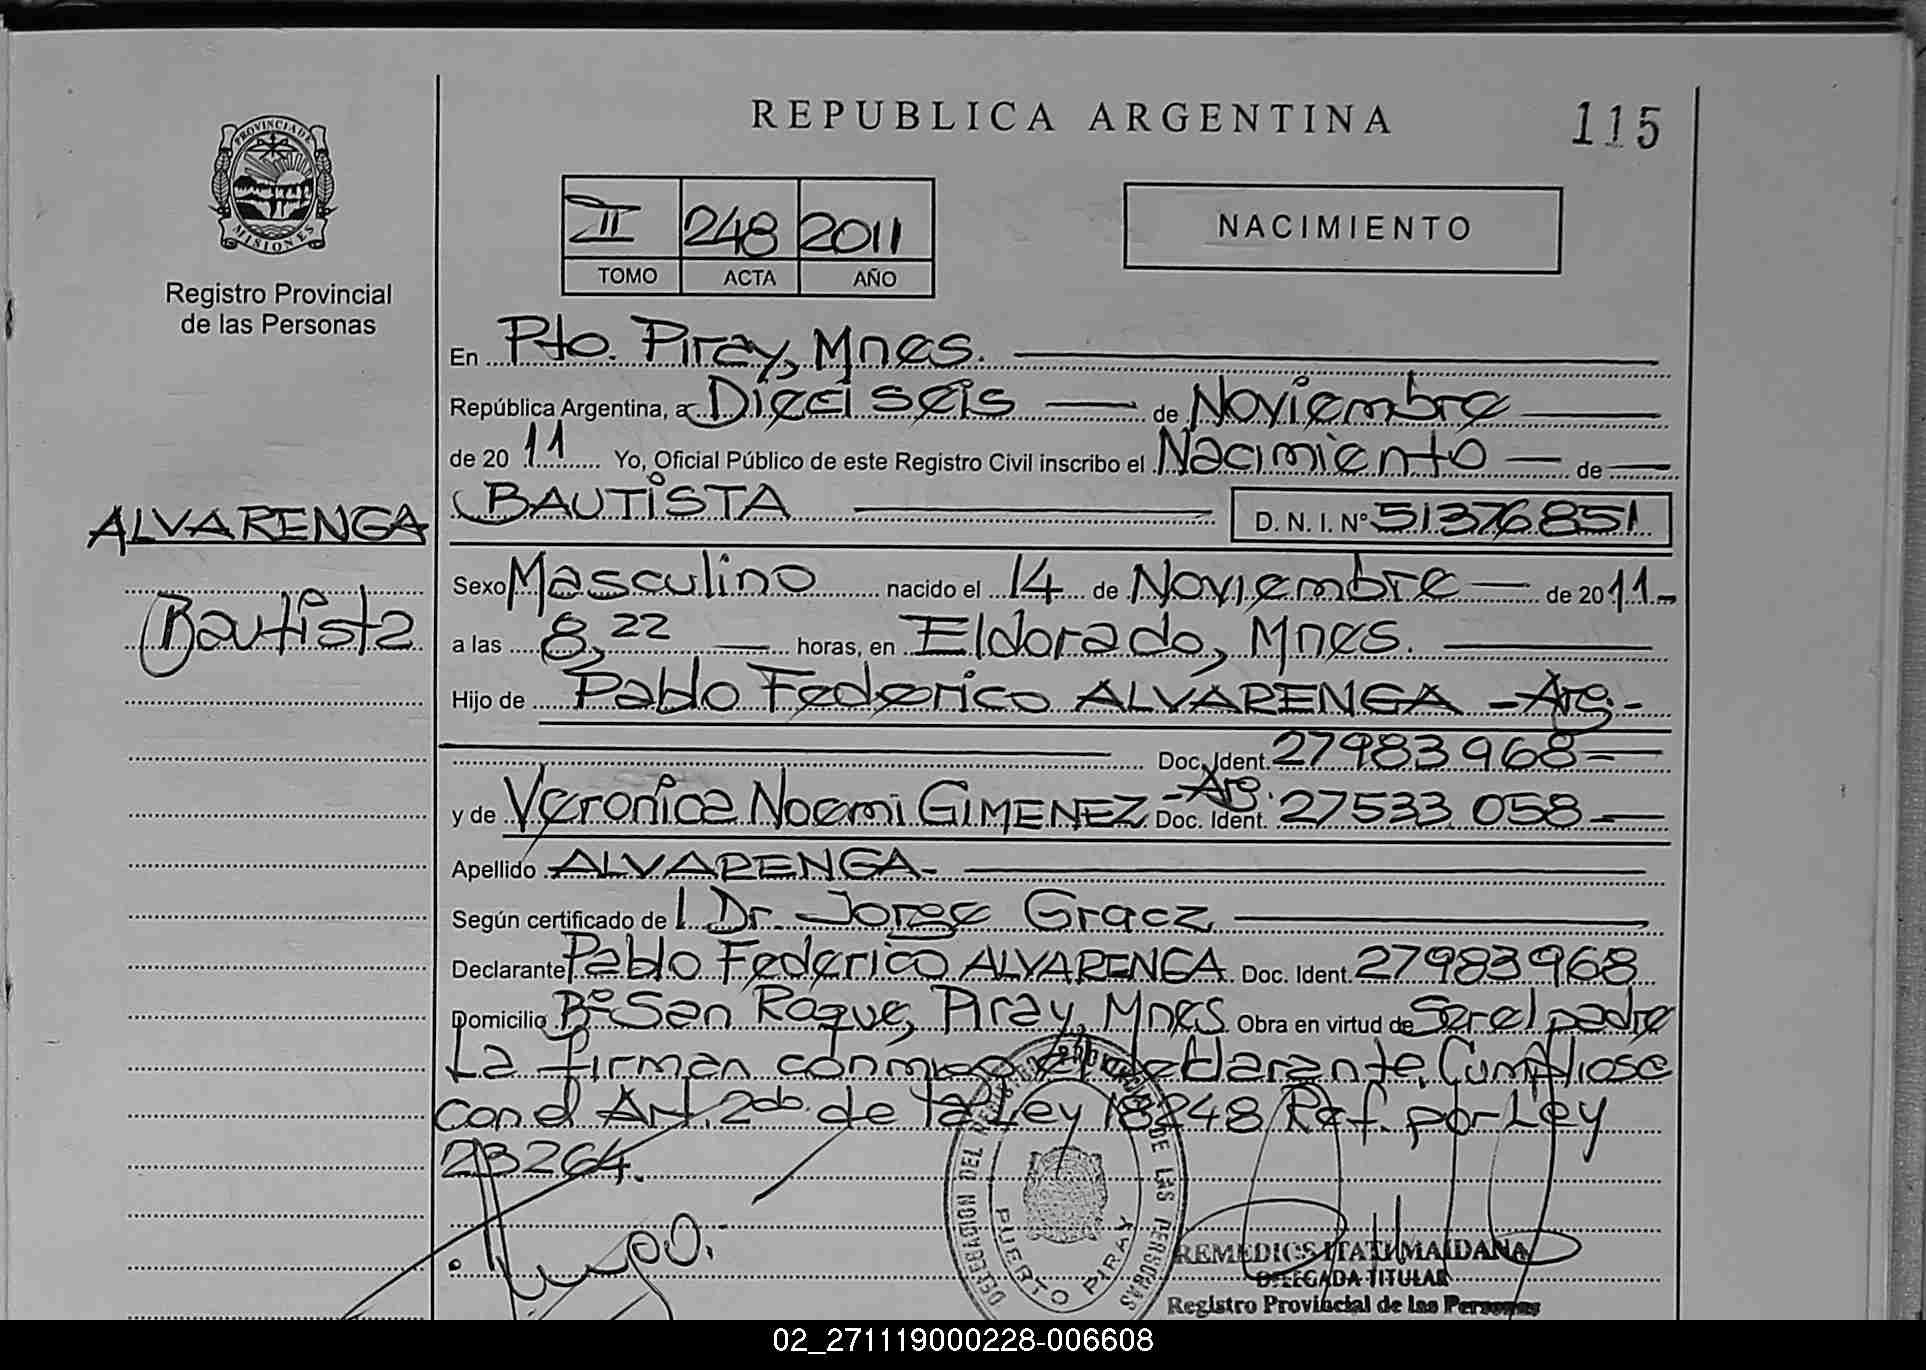 REPUBLICA ARGENTINA
115
PROVINCIA DE
MISIONES
Registro Provincial
de las Personas
II 248 2011
TOMO ACTA AÑO
NACIMIENTO
En Pto. Piray, Mnes.
República Argentina, a Dieciseis de Noviembre
de 20 11 Yo, Oficial Público de este Registro Civil inscribo el Nacimiento de
BAUTISTA D. N. I. Nº 51376851
ALVARENGA
Bautista
Sexo Masculino nacido el 14 de Noviembre de 2011
a las 8,22 horas, en Eldorado, Mnes.
Hijo de Pablo Federico ALVARENGA - Arg -
Doc. Ident. 27983968
y de Veronica Noemi GIMENEZ - Arg. Doc. Ident. 27533 058
Apellido ALVARENGA
Según certificado de l Dr. Jorge Gracz
Declarante Pablo Federico ALVARENGA Doc. Ident. 27983968
Domicilio Bº San Roque, Piray, Mnes Obra en virtud de Ser el padre
La firman conmigo el declarante. Cumpliose
con el Art. 2do. de la Ley 18248 Ref. por Ley
23264.
DELEGACION DEL REGISTRO PROVINCIAL DE LAS PERSONAS
PUERTO PIRAY
REMEDIOS ITATI MAIDANA
DELEGADA TITULAR
Registro Provincial de las Personas
02_271119000228-006608